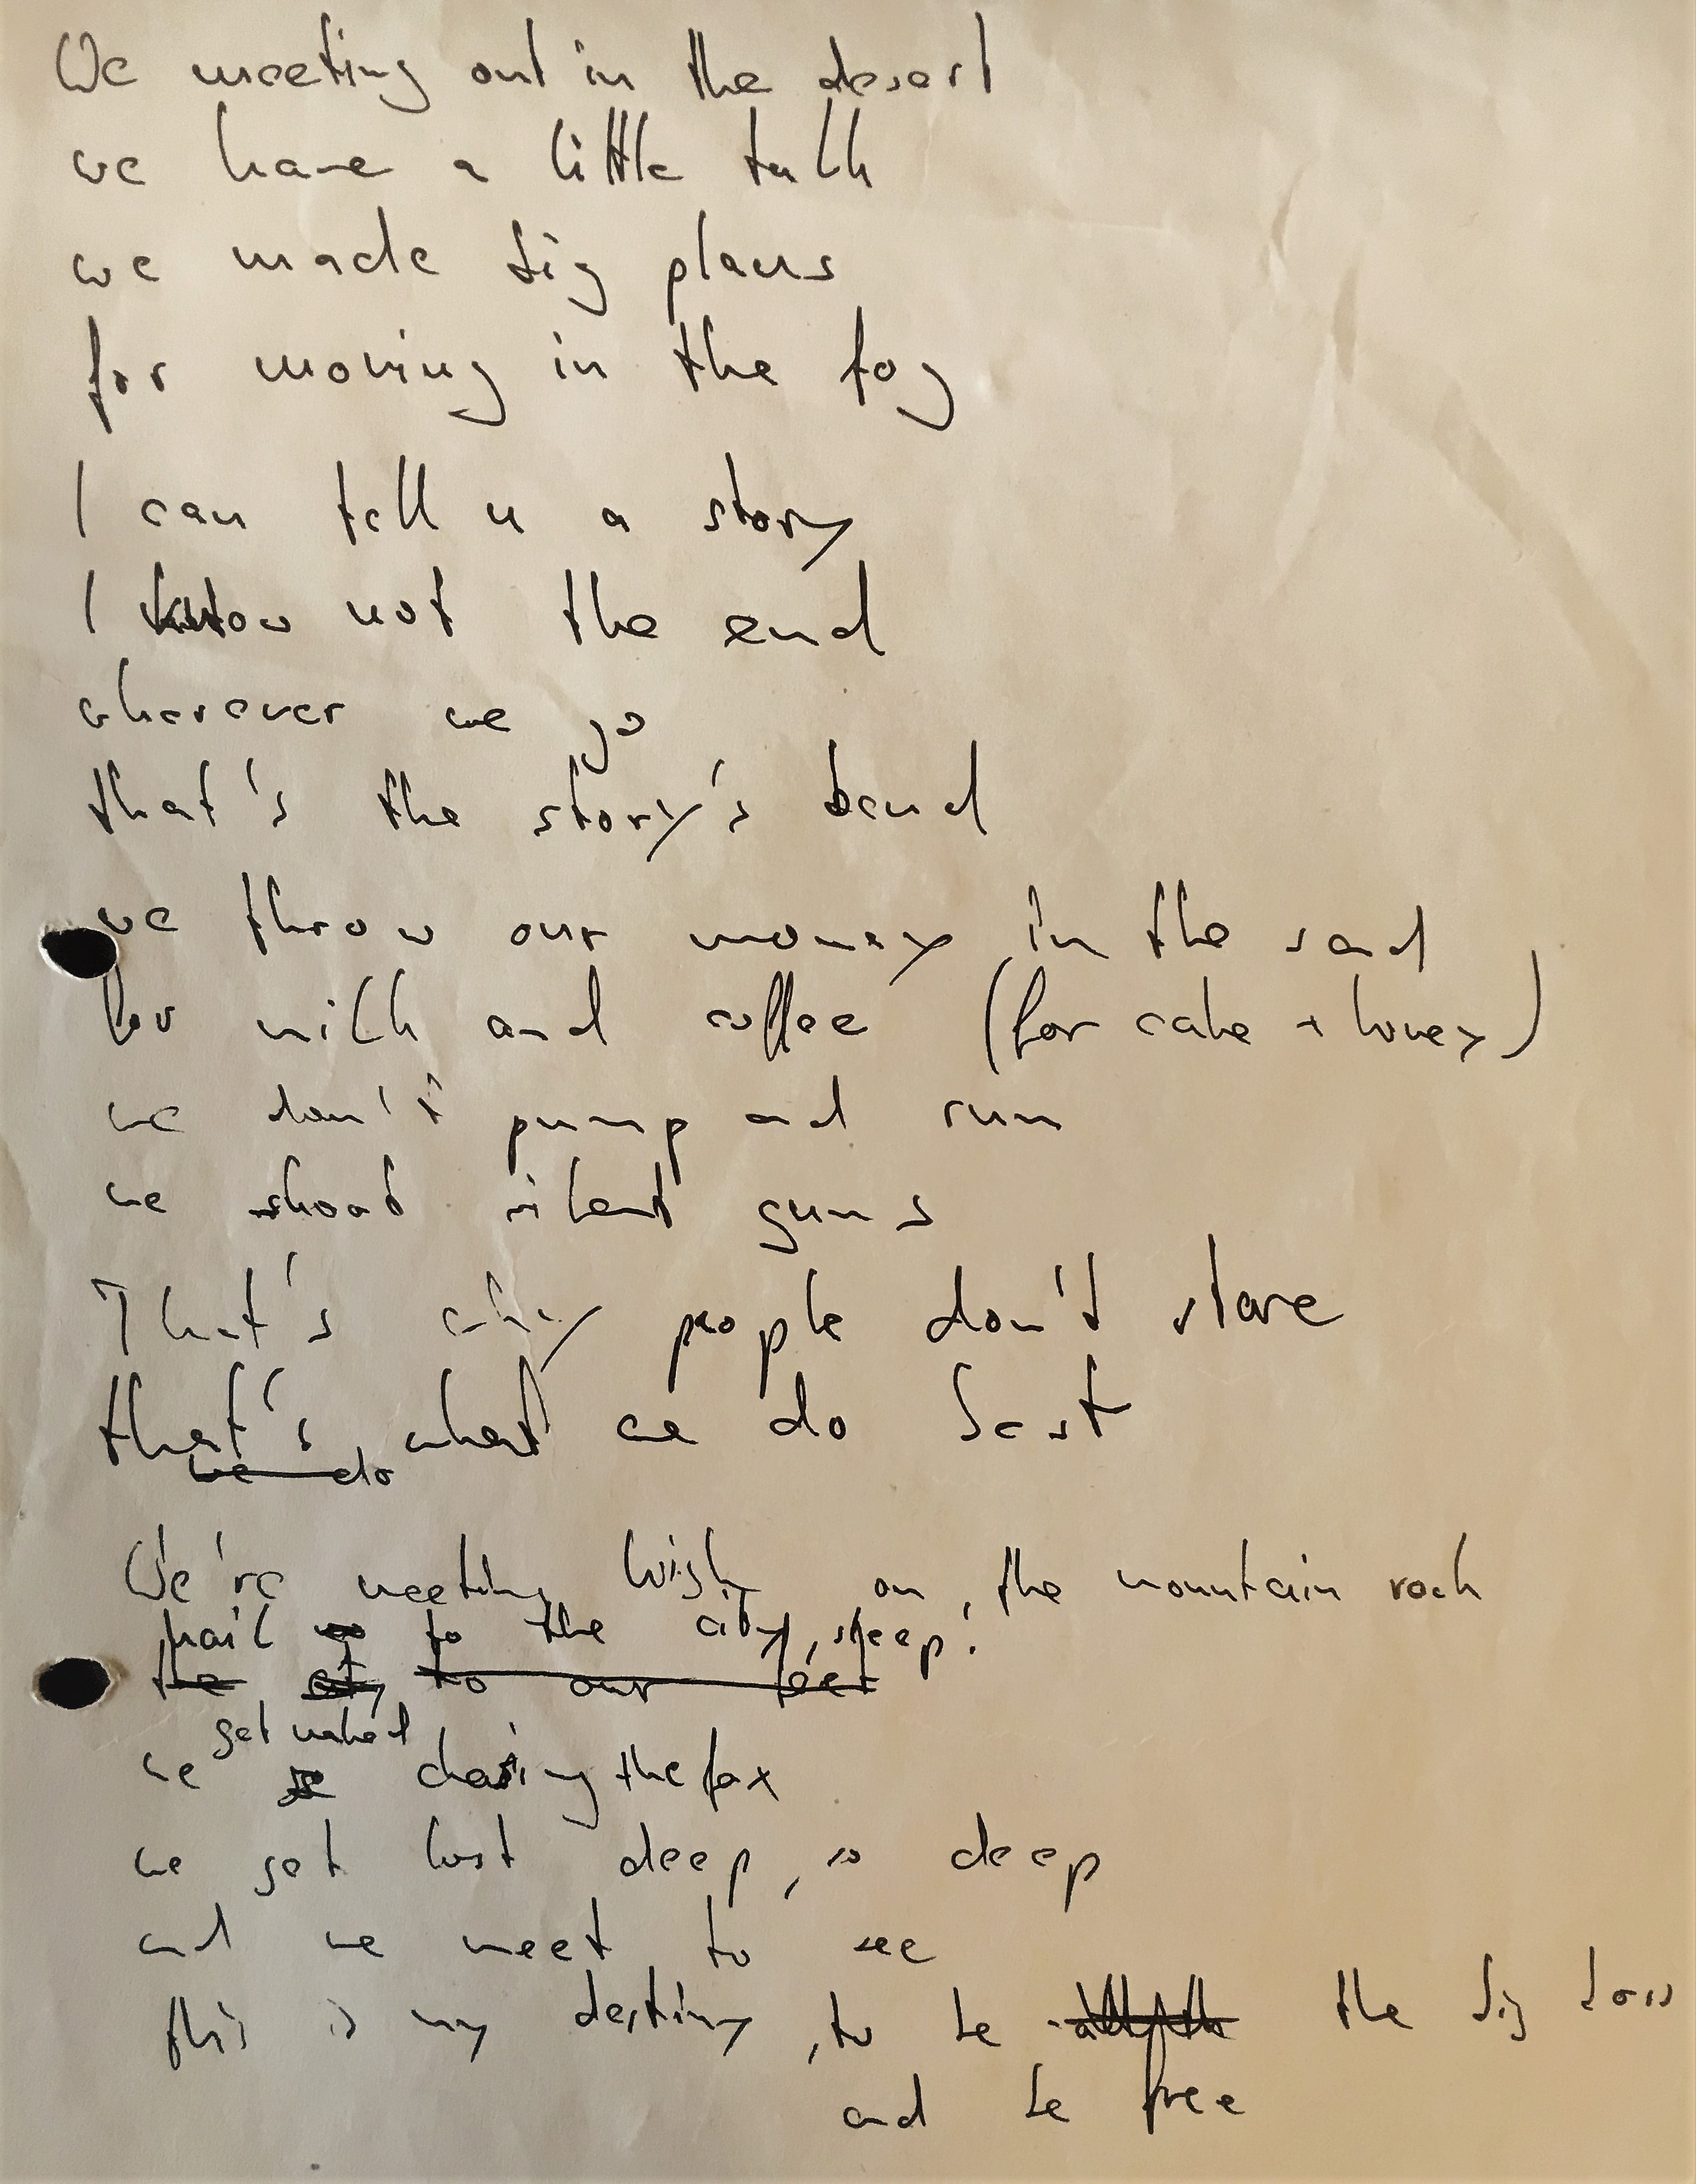 We meeting out in the desert
we have a little talk
we made big plans
for moving in the fog
I can tell u a story
I know not the end
wherever we go
that's the story's bend
we throw our money in the sand
for milk and coffee (for cake + honey)
we don't pump and run
we shoot silent guns
That's why people don't stare
that's what we do best
we do
We're meeting high on the mountain rock
hail to the city, steep!
the city to our feet
get naked
we chasing the fox
we get lost deep, so deep
and we meet to see
this is my destiny, to be the big boss
and be free